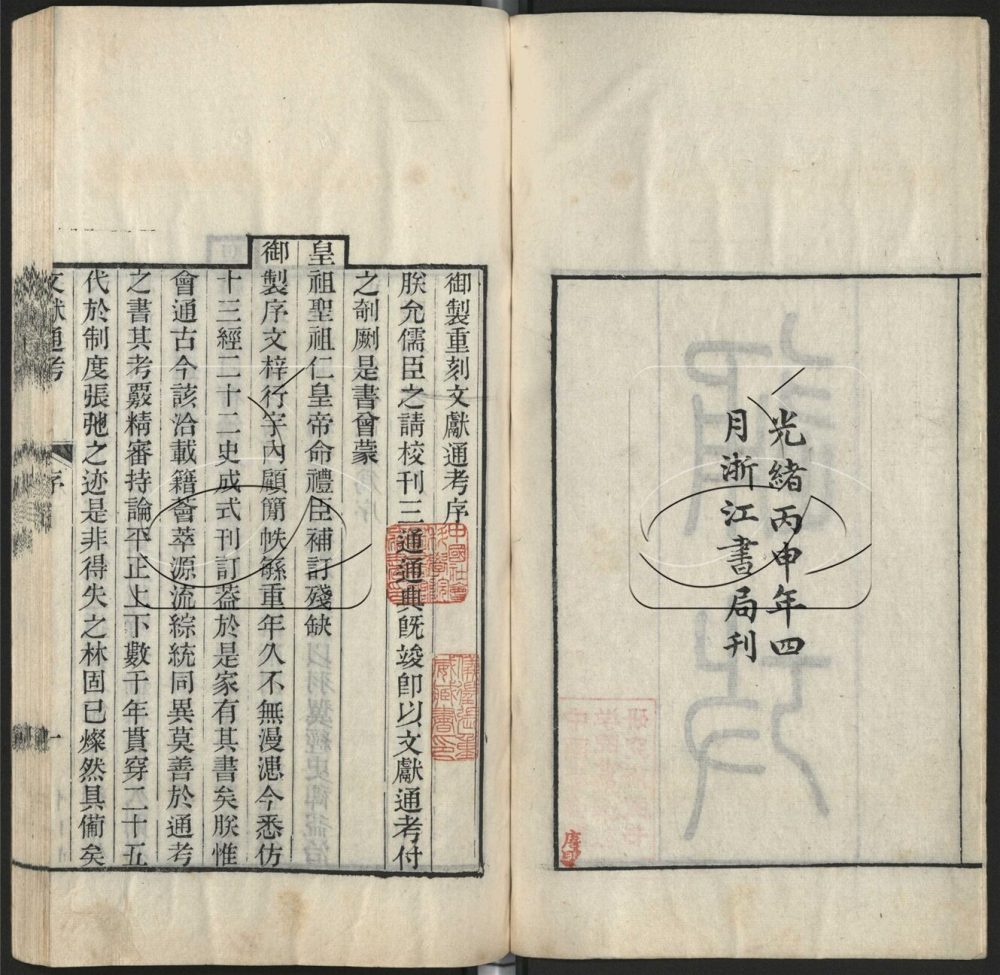 光緒丙申年四
月浙江書局刊
御製重刻文獻通考序
朕允儒臣之請校刊三通通典旣竣卽以文獻通考付
之剞劂是書曾蒙
皇祖聖祖仁皇帝命禮臣補訂殘缺
御製序文梓行宇內顧簡帙緐重年久不無漫漶今悉仿
十三經二十二史成式刊訂葢於是家有其書矣朕惟
會通古今該洽載籍薈萃源流綜統同異莫善於通考
之書其考覈精審持論平正上下數千年貫穿二十五
代於制度張弛之迹是非得失之林固已燦然具備矣
文獻通考
序
一